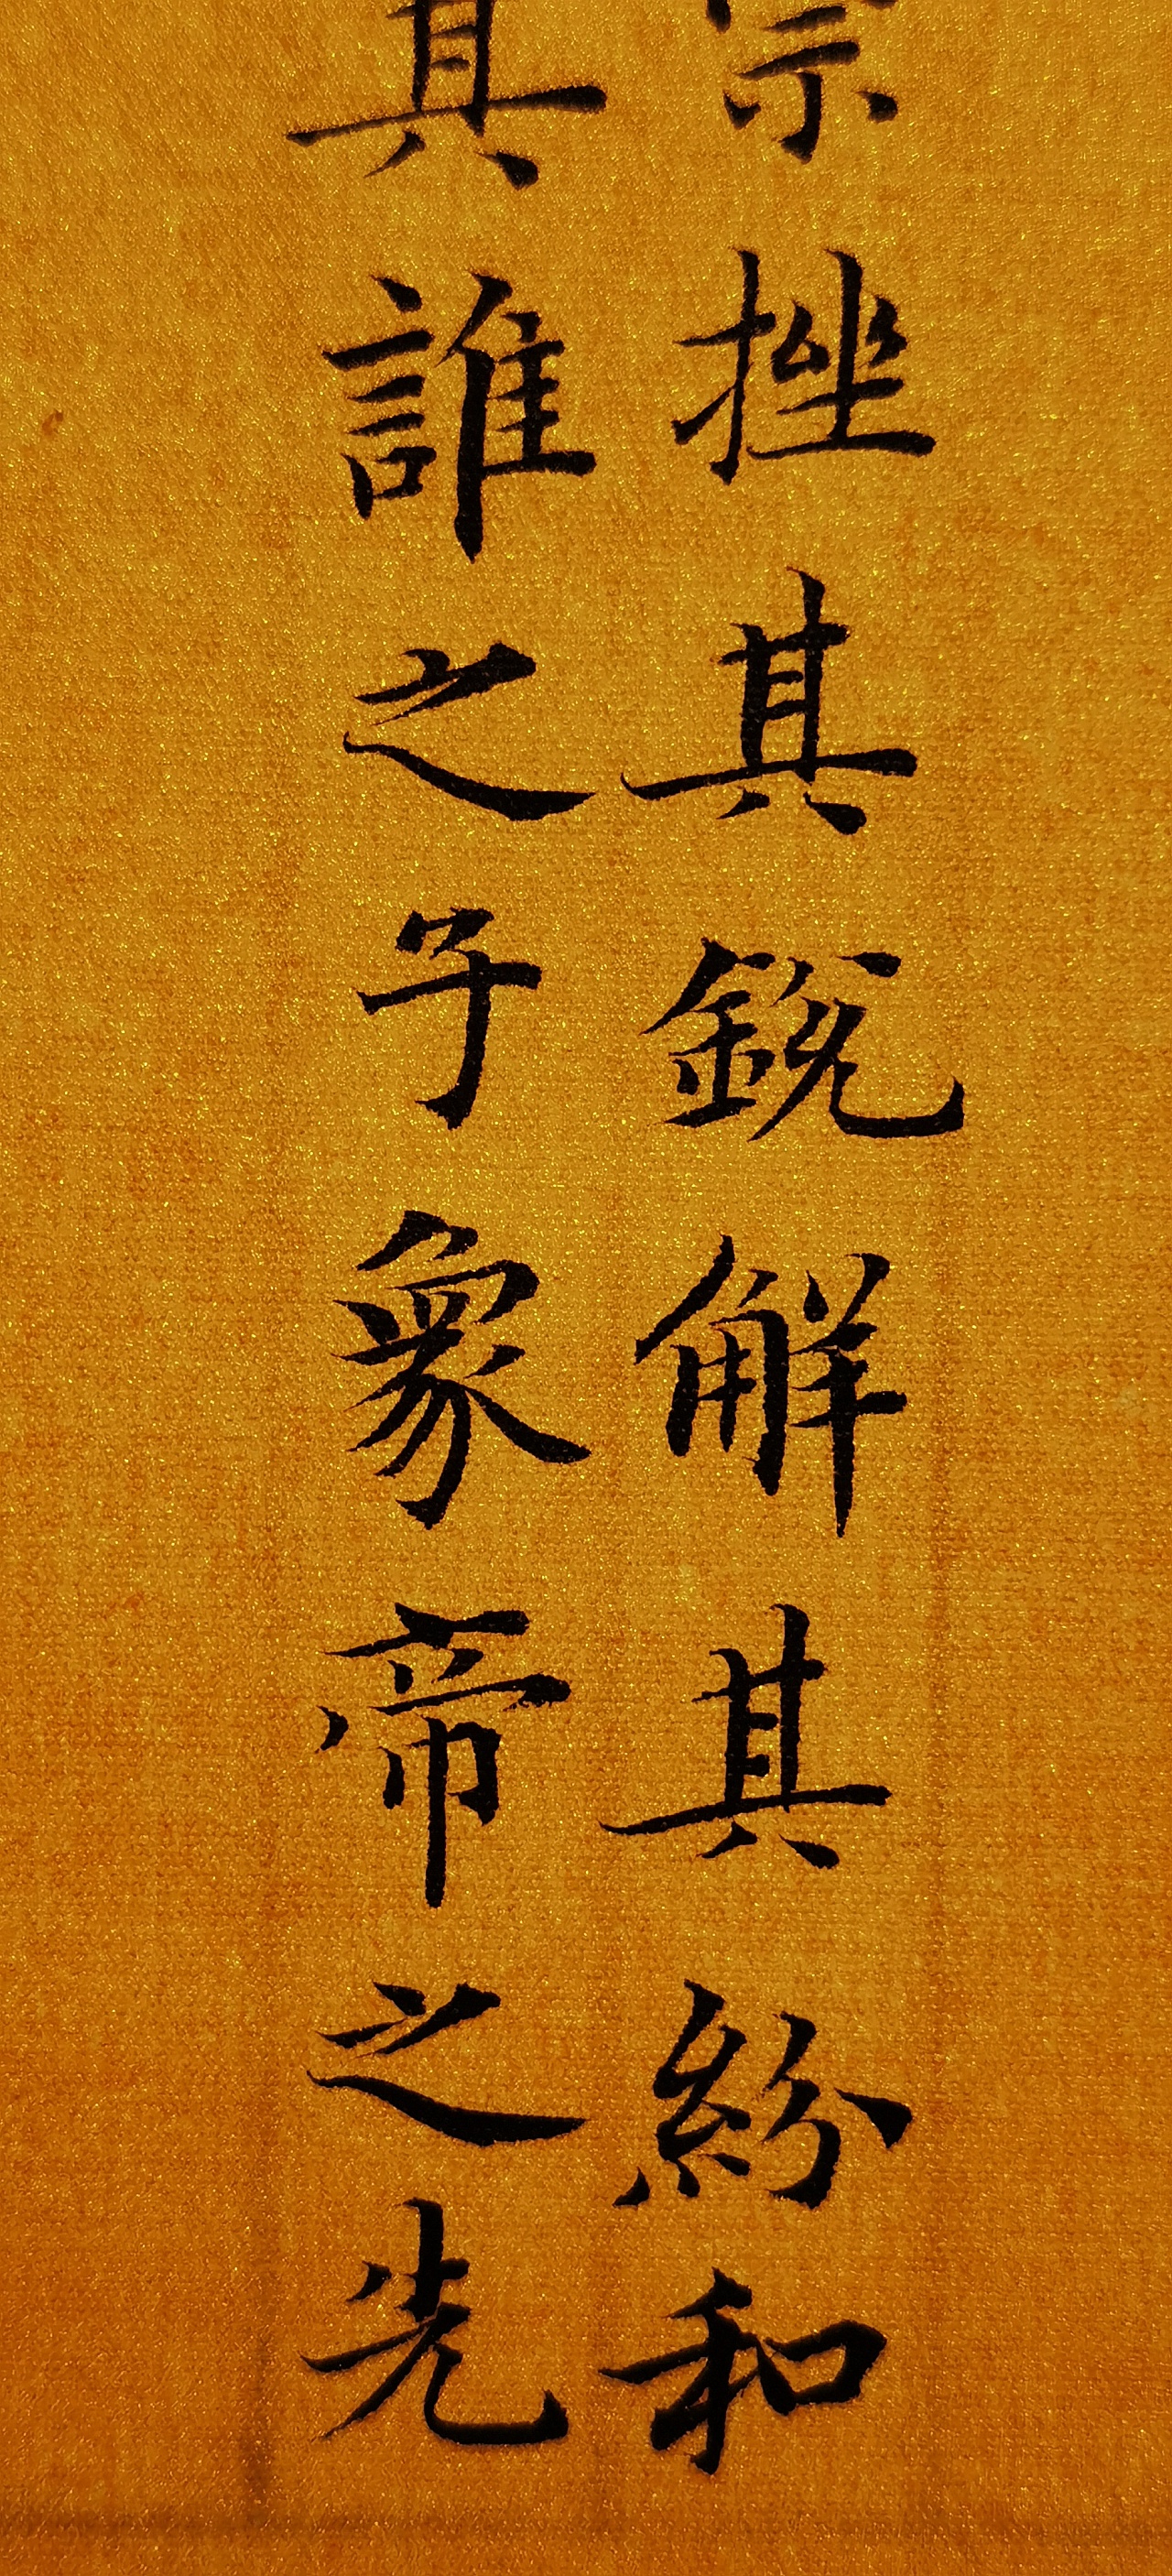 宗挫其銳解其紛和
其誰之子象帝之先